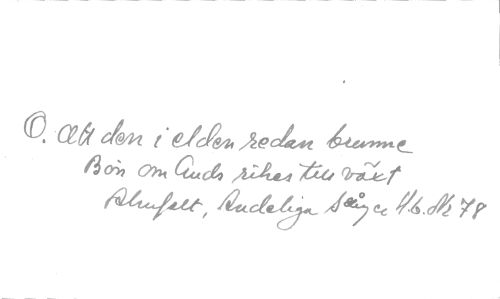 O. att den i elden redan brunne
Bön om Guds rikes till växt
Ahnfelt, Andeliga Sånger H.6. Nr 78